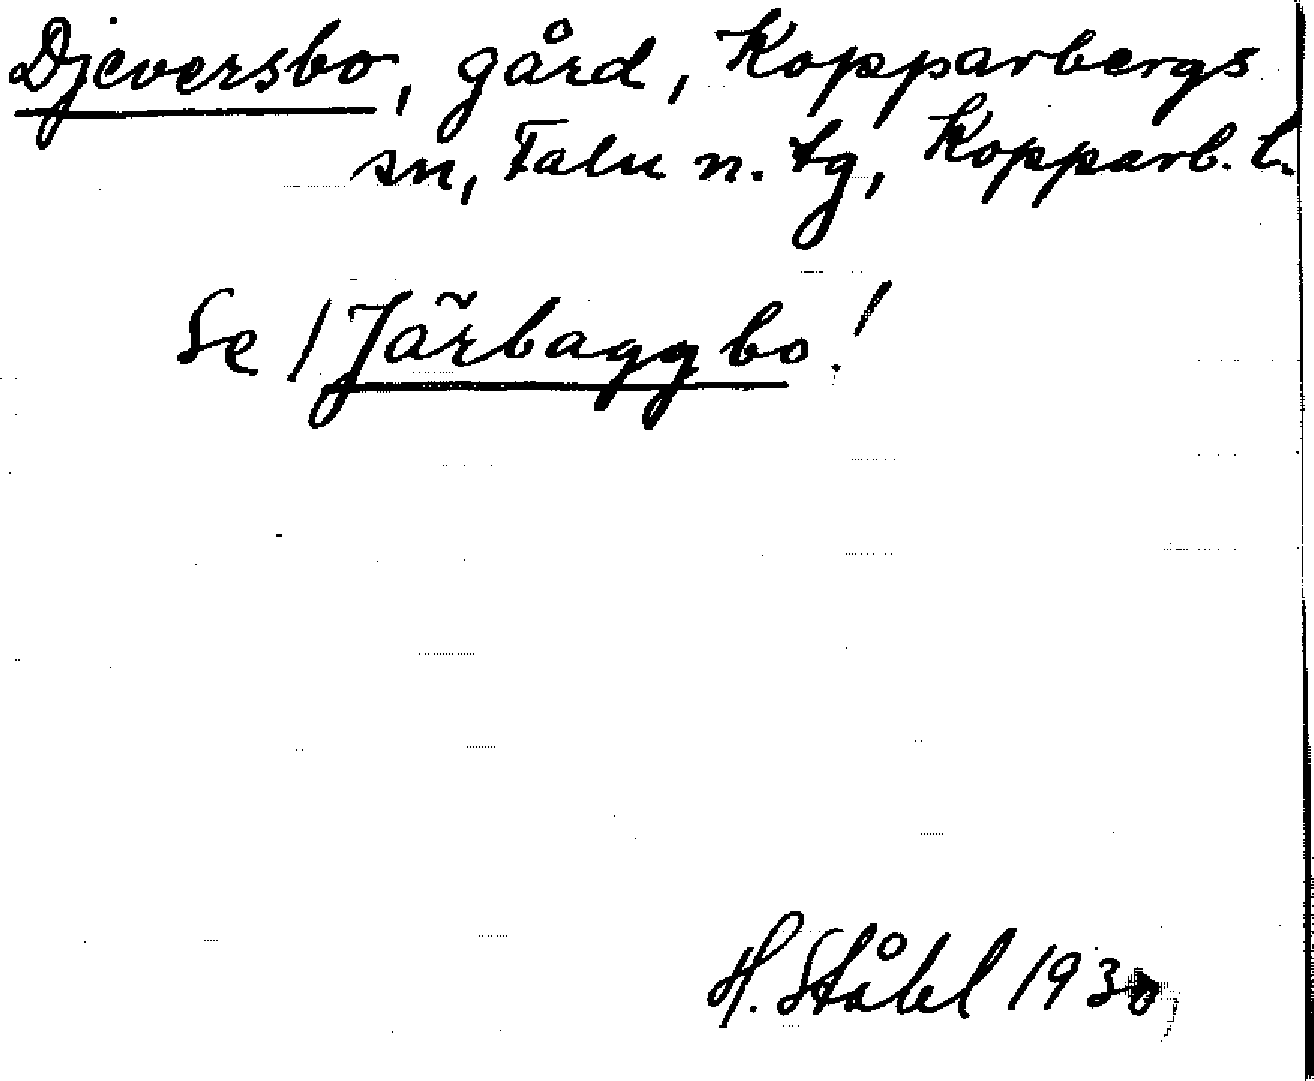 Djeversbo, gård, Kopparbergs
sn, Falu n. tg, Kopparb. l.
Se / Järbaggbo!
H. Ståhl 1930